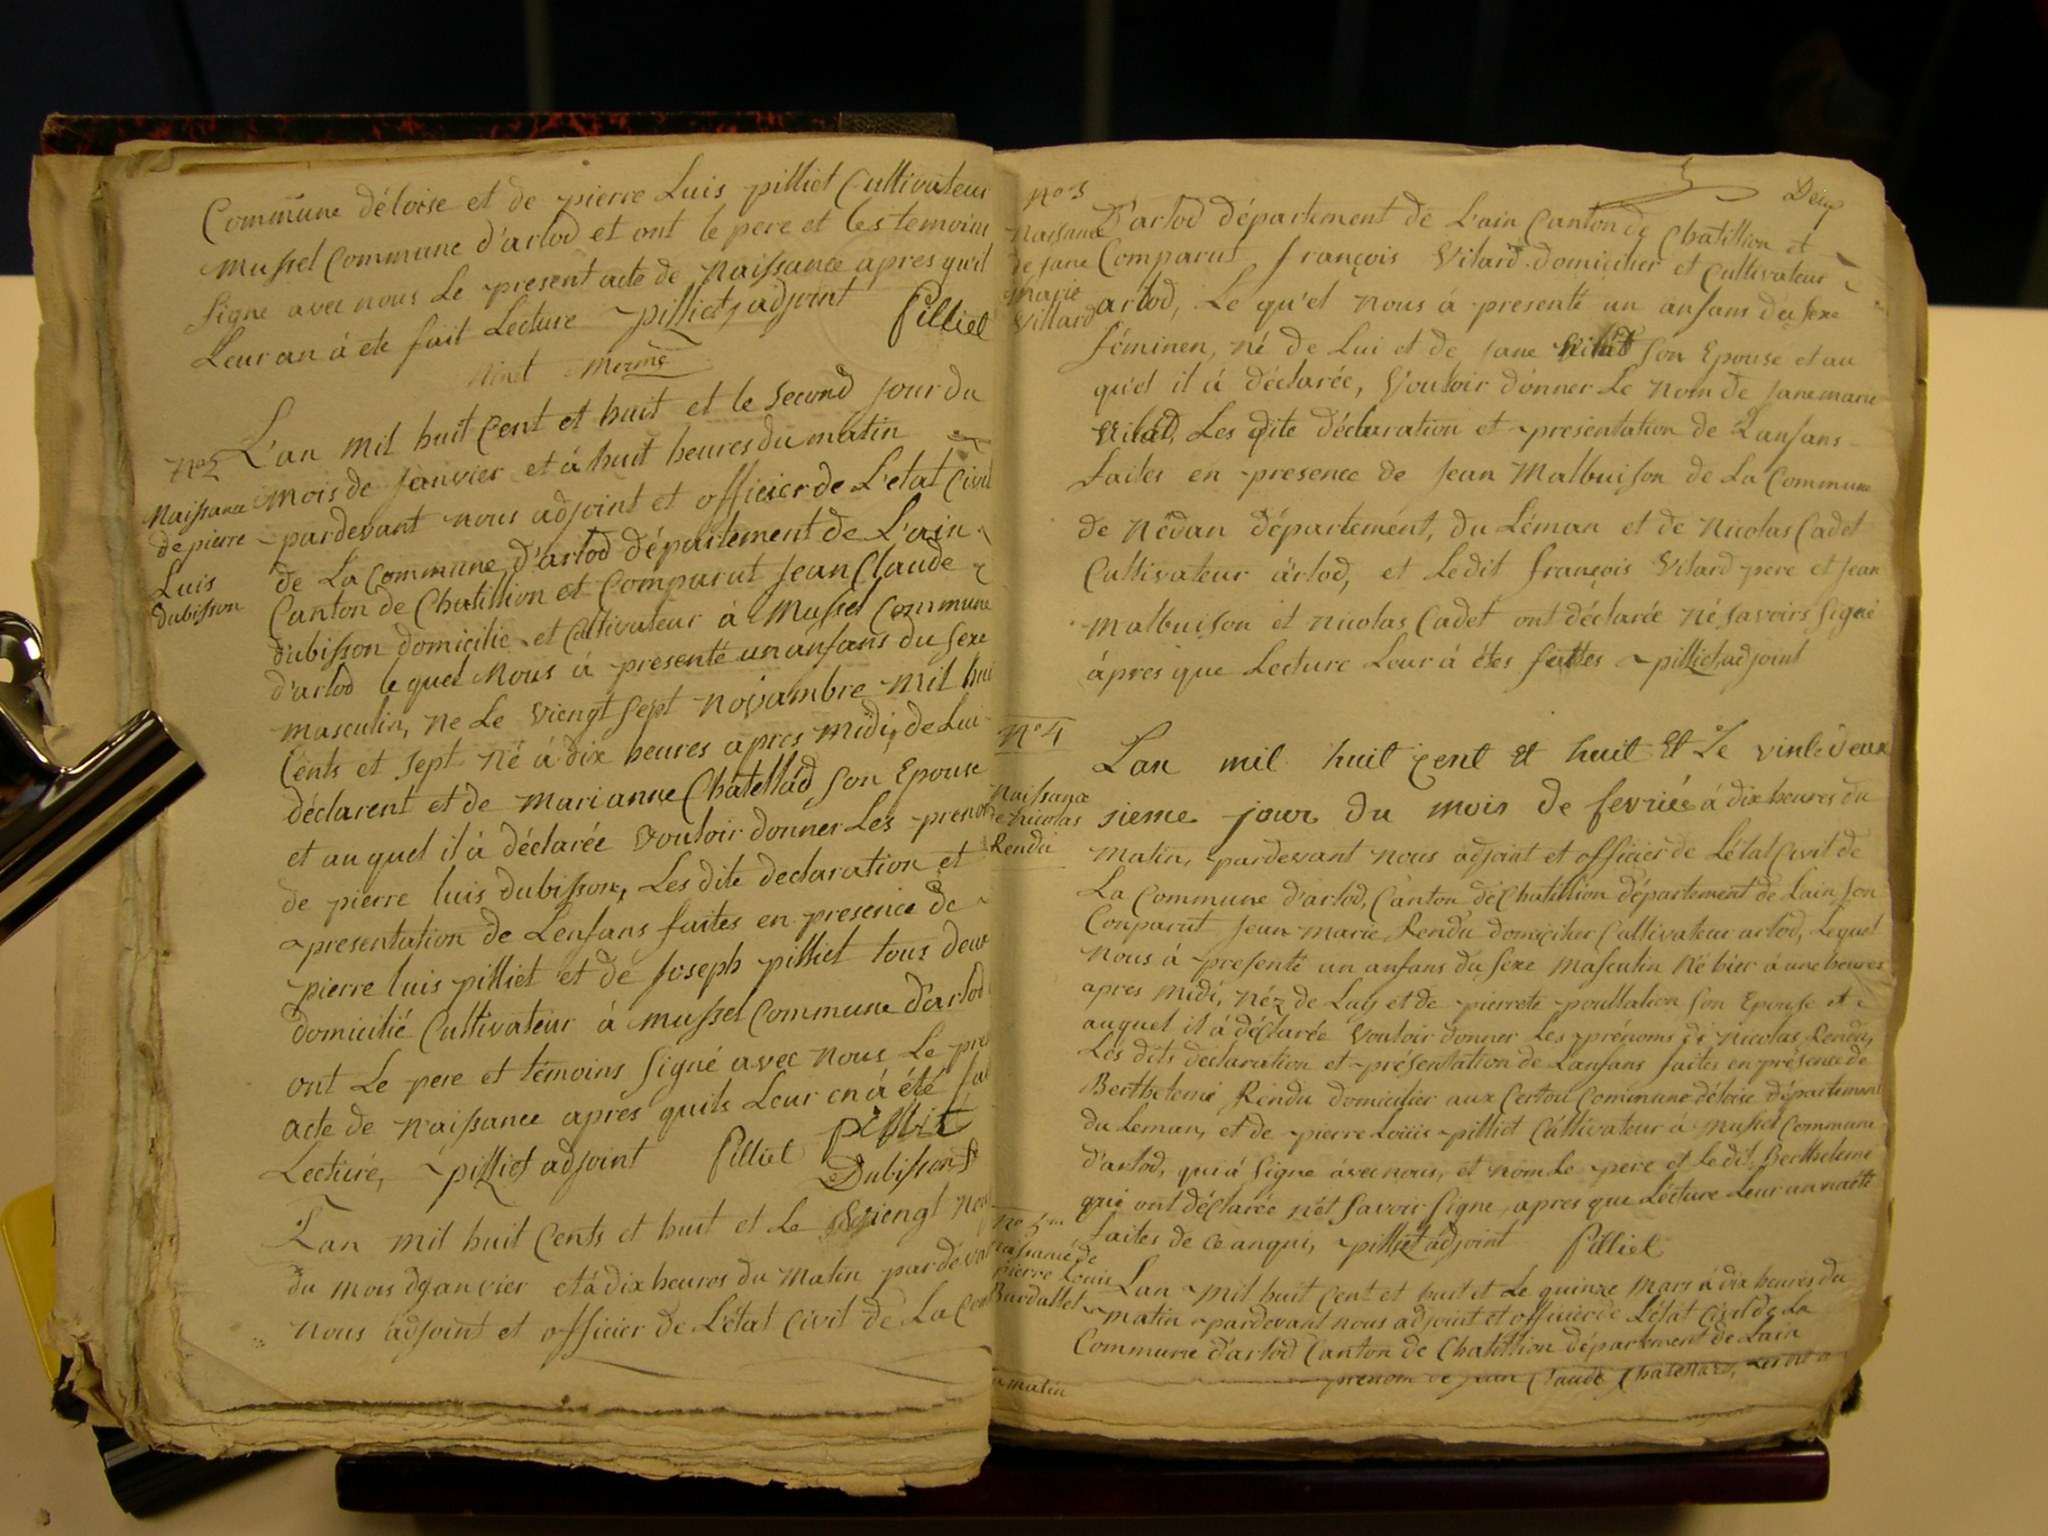 Commune déloise et de pierre Luis pilliet Cultivateur
Mussel Commune d'arlod et ont le pere et les temoins
Signe avec nous Le present acte de Naissance apres qu'il
Leur an á ete fait Lecture pilliet adjoint Pilliet
No 2
Naissance
de pierre
Luis
Dubisson
L'an mil huit Cent et huit et le Second jour du
mois de janvier et á huit heures du matin
pardevant nous adjoint et officier de L'etat Civil
de La Commune d'arlod département de L'ain
Canton de Chatillion et Comparut Jean Claude
dubisson domicilie et Cultivateur à Mussel Commune
d'arlod lequel Nous á presenté un anfans du Sexe
masculin, ne Le viengt Sept novambre mil hui
Cents et Sept Né á dix heures apres midi, de Lui
déclarent et de marianne Chatellád Son Epouse
et au quel il á déclarée vouloir donner Les prenom
de pierre luis dubisson, Les dite declaration et
presentation de Lenfans faites en presence de
pierre luis pilliet et de Joseph pilliet tous deux
domicilié Cultivateur à mussel Commune d'arlod
ont Le pere et témoins Signé avec nous Le pre
acte de Naissance apres quils Leur en á été fai
Lecture, pilliet adjoint Pilliet pilliet
Dubisson
L'an mil huit Cents et huit et Le viengt
du mois dyanvier et á dix heures du Matin pardeva
nous adjoint et officier de L'état Civil de La Com
Deux
No 3
Naissance
de jane
Marie
Villard
D'arlod département de L'ain Canton de Chatillion et
Comparut françois Vilard domicilier et Cultivateur
arlod, Le qu'el nous á presenté un anfans du Sexe
féminen, né de Lui et de jane Son Epouse et au
qu'el il á déclarée, Vouloir donner Le nom de jane marie
Vilad, Les dite déclaration et presentation de Lanfans
faites en presence de Jean Malbuison de La Commune
de Nédan département, du Léman et de Nicolas Cadet
Cultivateur arlod, et Ledit françois Vilard pere et Jean
Malbuison et Nicolas Cadet ont déclarée né Savoirs Signé
ápres que Lecture Leur á étes faittes pilliet adjoint
No 4
Naissance
de Nicolas
Rendu
L'an mil huit cent et huit Et Le vinte deux
sieme jour du mois de fevrié á dix heures du
matin, pardevant nous adjoint et officier de Létat Civil de
La Commune d'arlod, Canton de Chatillion département de Lain Son
Conparut Jean marie Rendu domicilier Cultivateur arlod, Lequel
Nous á presenté un anfans du Sexe Masculin Né hier á une heures
apres midi, néz de Luy et de pierrete poullalion Son Epouse et
auquel il á déclarée vouloir donner Les prénoms de nicolas Rendu,
Les dits declaration et présentation de Lanfans faites en présence de
Berthelemie Rendu domicilier aux Certou Commune déloise département
du Leman, et de pierre Loüis pilliet Cultivateur á Mussel Commune
d'arlod, qui á Signe ávec nous, et nom Le pere et ledit Berthéleme
qui ont déclarée nét Savoir Signe, apres que Lecture Leur an naété
faites de ce anqui, pilliet adjoint Pilliet
No 5
Naissance de
pierre Louis
Burdallet
L'an mil huit Cent et huit et Le quinze Mars á dix heures du
matin pardevant nous adjoint et officier de Létat Civil de La
Commune d'arlod Canton de Chatillion département de Lain
prenom de Jean Claude Chatellard,
matin